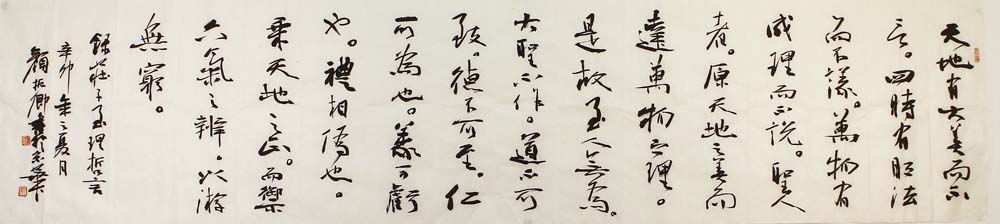 天地有大美而不
言。四時有明法
而不議。萬物有
成理而不說。聖人
者。原天地之美而
達萬物之理。
是故至人無為。
大聖不作。道不可
致。德不可至。仁
可為也。義可虧
也。禮相偽也。
乘天地之正。而禦
六氣之辨。以游
無窮。
錄莊子至理哲言
辛卯年之夏月
顏振卿書於京華